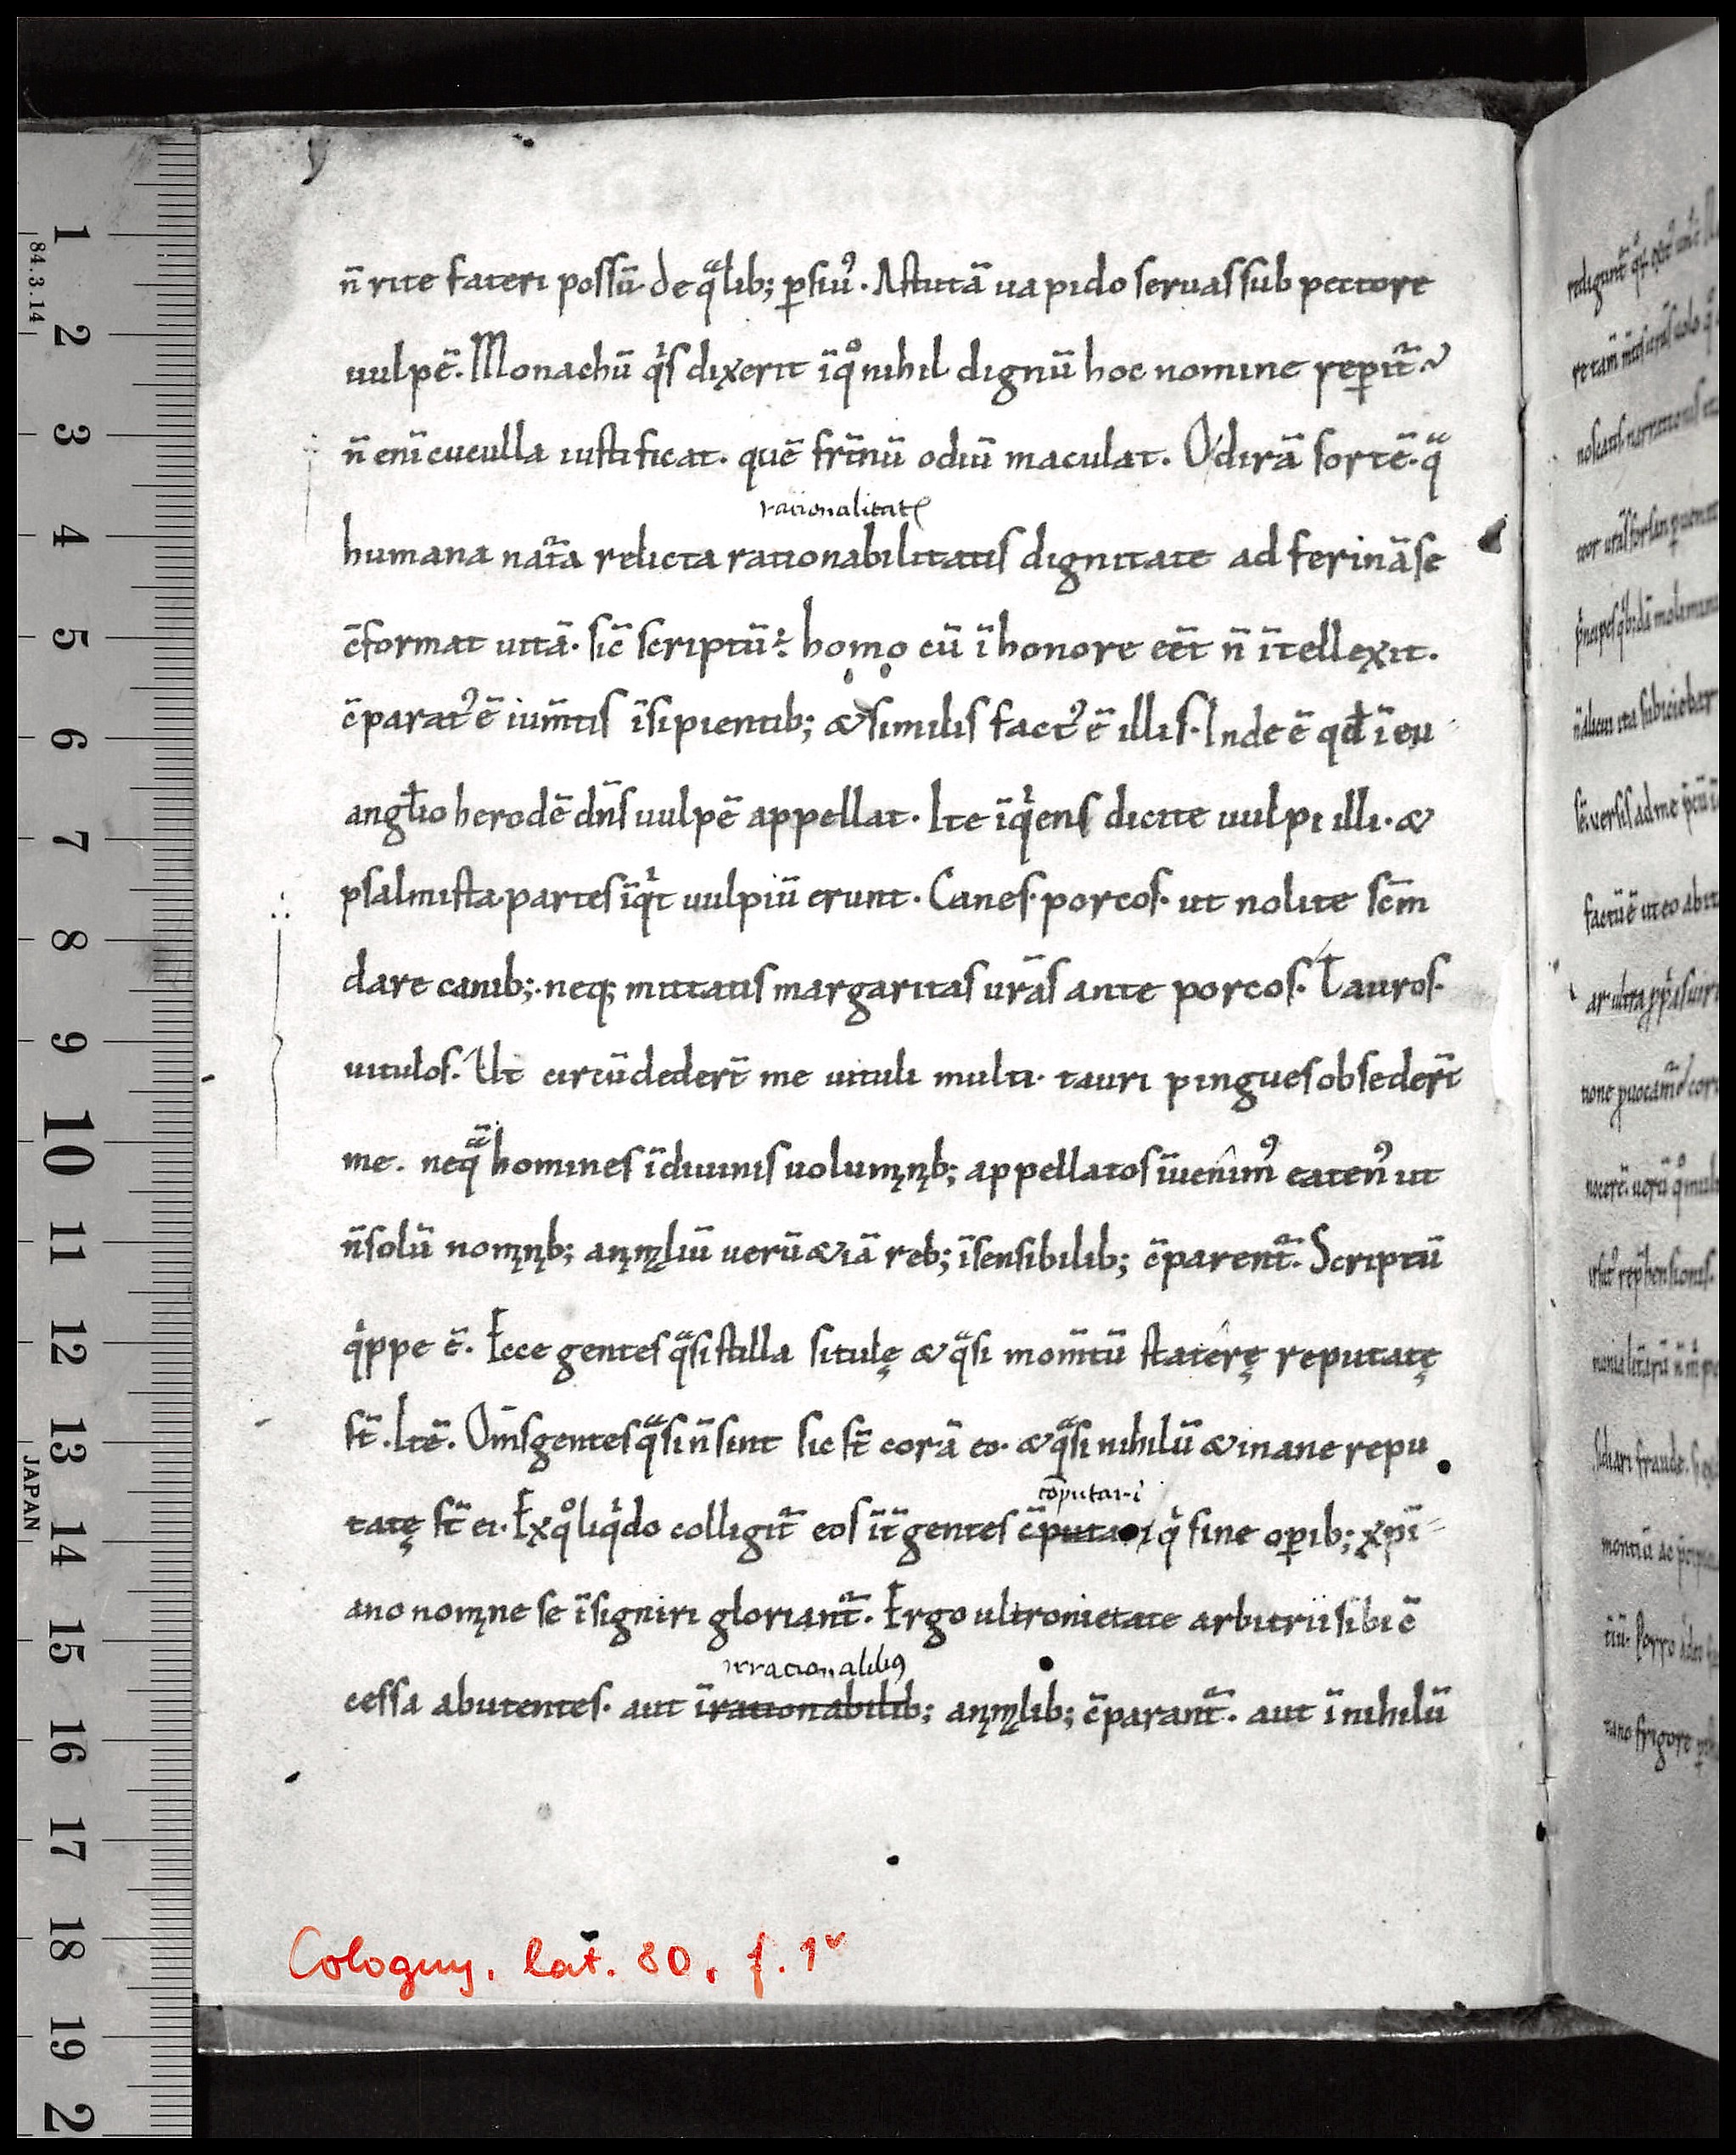 n̄ rite fateri possū. de qͣlib; ꝑsiuꝰ. Astutā uapido seruas sub pectore
uulpē. Monachū qͥs dixerit ī qͦ nihil dignū hoc nomine reꝑit̃
n̄ enī cuculla iustificat. quē fr̄tnū odiū maculat. O dirā sortē. qͣ
rationalitatꝭ
humana nat̃a relicta rationabilitatis dignitate ad ferinā se
c̄format uitā. sic̄ scriptū÷ homo cū ī honore eēt n̄ ītellexit.
c̄paratꝰ ē ium̄tis īsipientib; & similis factꝰ ē illis. Inde ē qd̄ ī eu
angl̄io herodē dn̄s uulpē appellat. Ite īqͥens dicite uulpi illi. &
psalmista. partes īqͥt uulpiū erunt. Canes. porcos. ut nolite sc̄m
dare canib; neq; mittatis margaritas ur̄as ante porcos. Tauros.
uitulos. Ut circūdeder̄t me uituli multi. tauri pingues obseder̄t
me. neqͣ homines ī diuinis uoluminib; appellatos īuenimꝰ eatenꝰ ut
n̄ solū nominib; animaliū uerū & iā reb; īsensibilib; c̄parent̃. Scriptū
qͥppe ē. Ecce gentes qͣsi stilla situlę & qͣsi mom̄tū staterę reputatę
st̄. Itē. Om̄s gentes qͣsi n̄ sint sic st̄ corā eo. & qͣsi nihilū & inane repu
cōputari
tatę st̄ ei. Ex qͦ liqͥdo colligit̃ eos īt̃ gentes c̄putari qͥ sine oꝑib; xp̄i
ano nomine se īsigniri gloriant̃. Ergo ultronietate arbitrii sibi c̄
irracionalibꝰ
cessa abutentes. aut īrationabilib; animalib; c̄parant̃. aut ī nihilū
Cologny, lat. 80, f. 1v
1
2
3
4
5
6
7
8
9
10
11
12
13
14
15
16
17
18
19
2
84.3.14
JAPAN